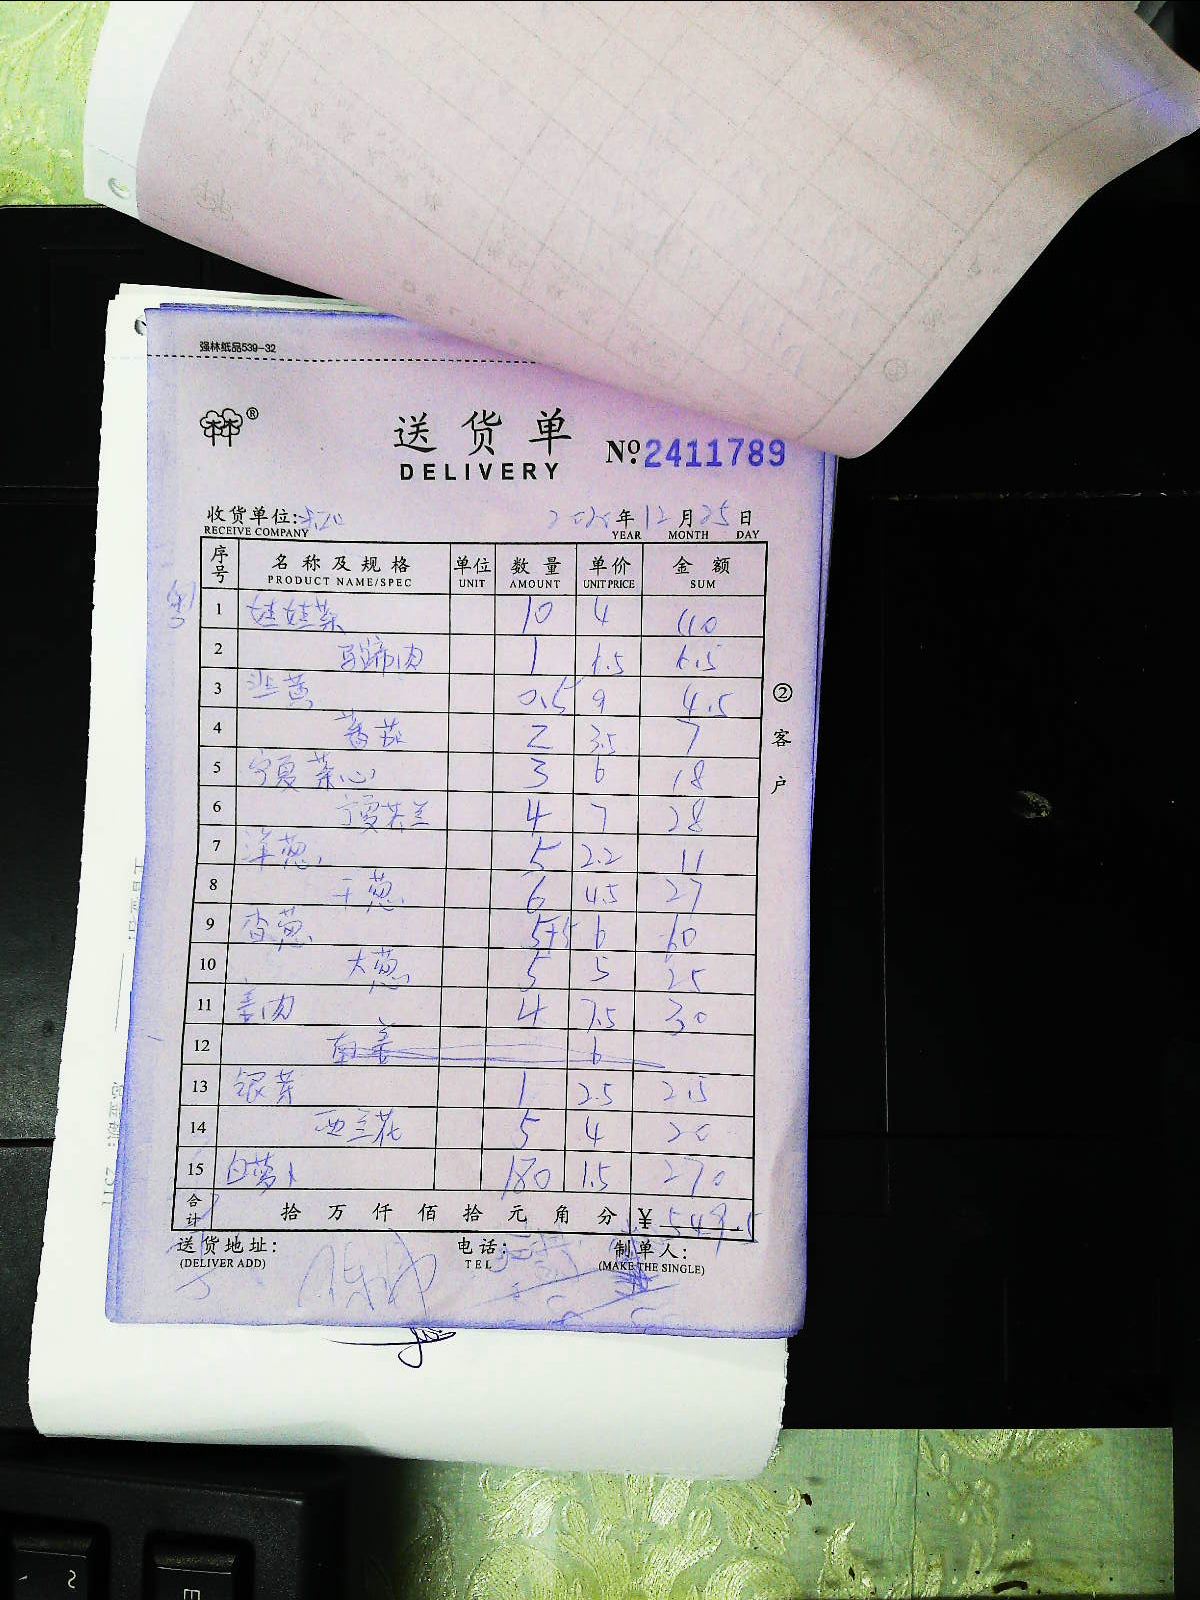 强林纸品539-32
送货单
DELIVERY
№ 2411789
收货单位:
RECEIVE COMPANY
年 12 月 25 日
YEAR MONTH DAY
序号 名称及规格 单位 数量 单价 金额
PRODUCT NAME/SPEC UNIT AMOUNT UNIT PRICE SUM
1 娃娃菜 10 4 40
2 马蹄肉 1 6.5 6.5
3 韭黄 0.5 9 4.5
4 蕃茄 2 3.5 7
5 宁夏菜心 3 6 18
6 宁夏芥兰 4 7 28
7 洋葱 5 2.2 11
8 干葱 6 4.5 27
9 香葱 5+5 6 60
10 大葱 5 5 25
11 姜肉 4 7.5 30
12 南姜 6
13 银芽 1 2.5 2.5
14 西兰花 5 4 20
15 白萝卜 180 1.5 270
合计 拾 万 仟 佰 拾 元 角 分 ¥ 549.5
送货地址: 电话: 制单人:
(DELIVER ADD) TEL (MAKE THE SINGLE)
② 客户